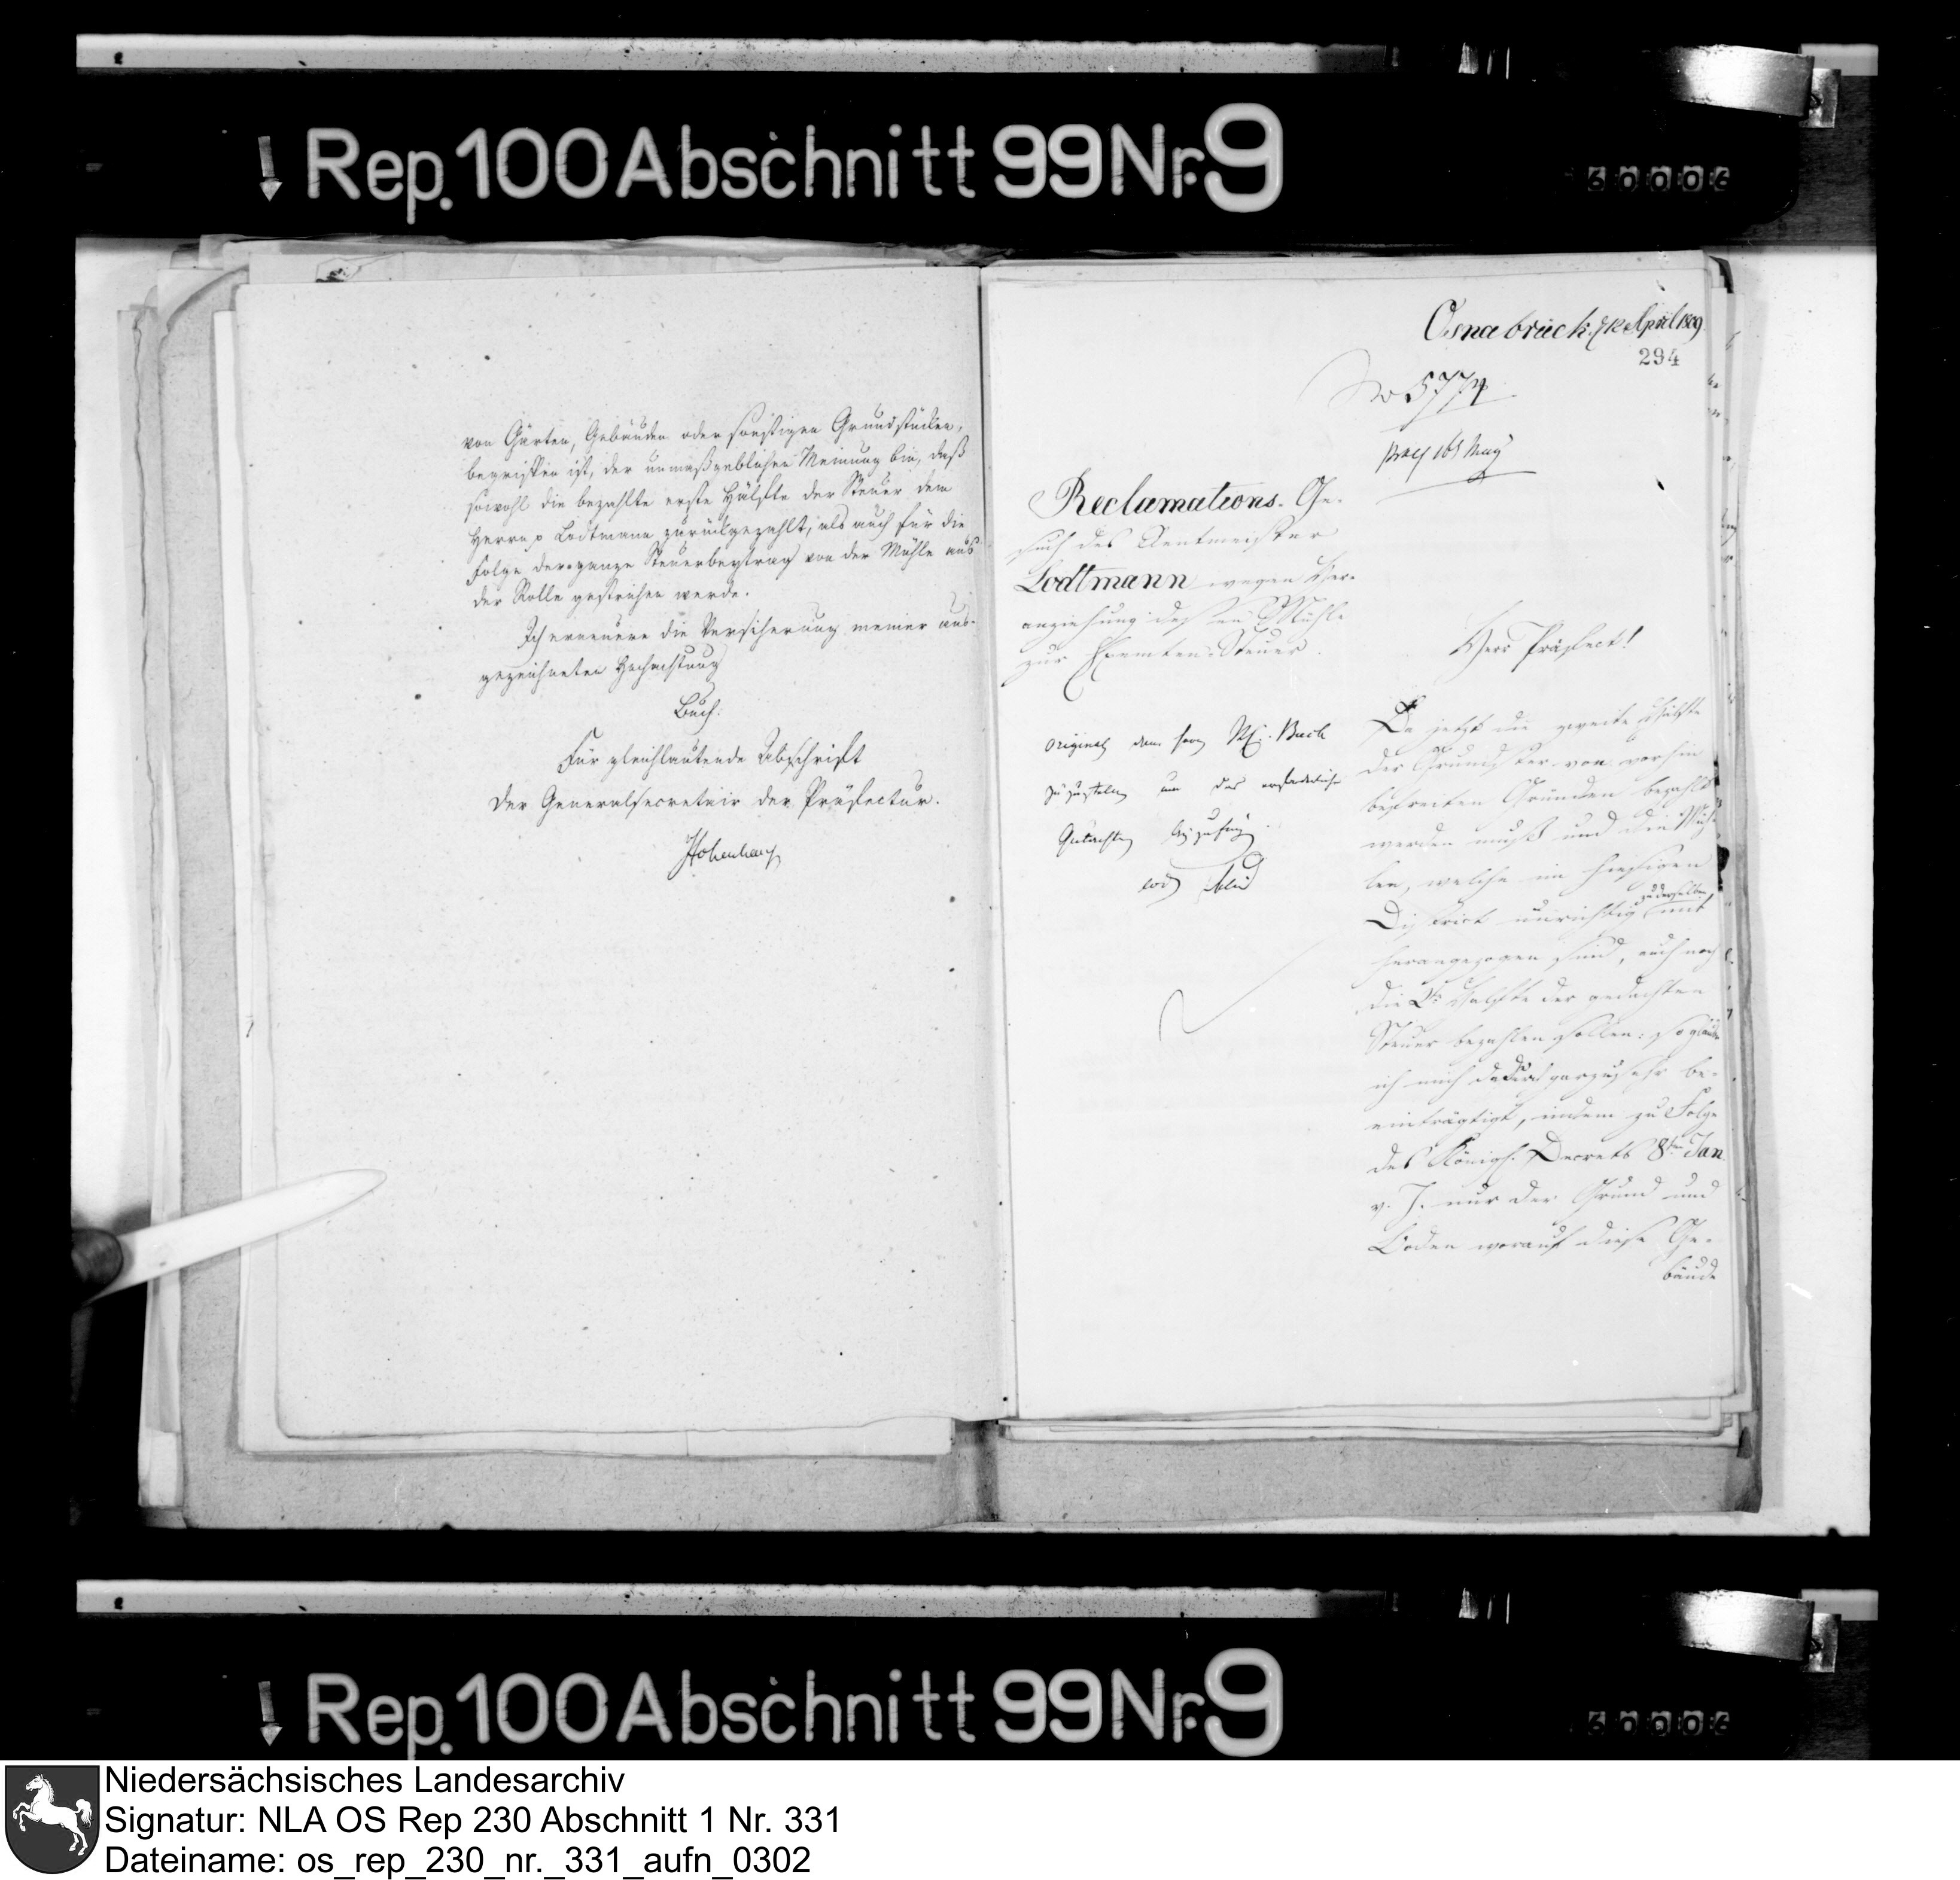 Rep. 100 Abschnitt 99 Nr. 9
60006
von Gärten, Gebäuden oder sonstigen Grundstücken,
begriffen ist, der unmaßgeblichen Meinung bin, daß
sowohl die bezahlte erste Hälfte der Steuer dem
Herrn p Lodtmann zurückgezahlt, als auch für die
Folge der ganze Steuerbeytrag von der Mühle aus
der Rolle gestrichen werde.
Ich erneuere die Versicherung meiner aus-
gezeichneten Hochachtung
Buch.
Für gleichlautende Abschrift
der Generalsecretair der Präfectur.
Osnabrück, 12 April 1809
294
No 5774
May
Reclamations-Ge-
such des Rentmeister
Lodtmann wegen Her-
anziehung dessen Mühle
zur Exemten-Steuer.
Original dem Herrn Buch
zuzustellen um das erforderliche
Gutachten
Herr Präfect!
Da jetzt die zweite Hälfte
der Grundsteuer von vorhin
befreiten Gründen bezahlt
werden muß und die Müh-
len, welche im hiesigen
zu derselben
District unrichtig mit
herangezogen sind, auch noch
die 2te Hälfte der gedachten
Steuer bezahlen sollen: so glaube
ich mich dadurch gar zu sehr be-
einträgtigt, indem zu Folge
des Königl. Decrets 8ten Jan
v. J. nur der Grund und
Boden worauf diese Ge-
bäude
Rep. 100 Abschnitt 99 Nr. 9
60006
Niedersächsisches Landesarchiv
Signatur: NLA OS Rep 230 Abschnitt 1 Nr. 331
Dateiname: os_rep_230_nr._331_aufn_0302